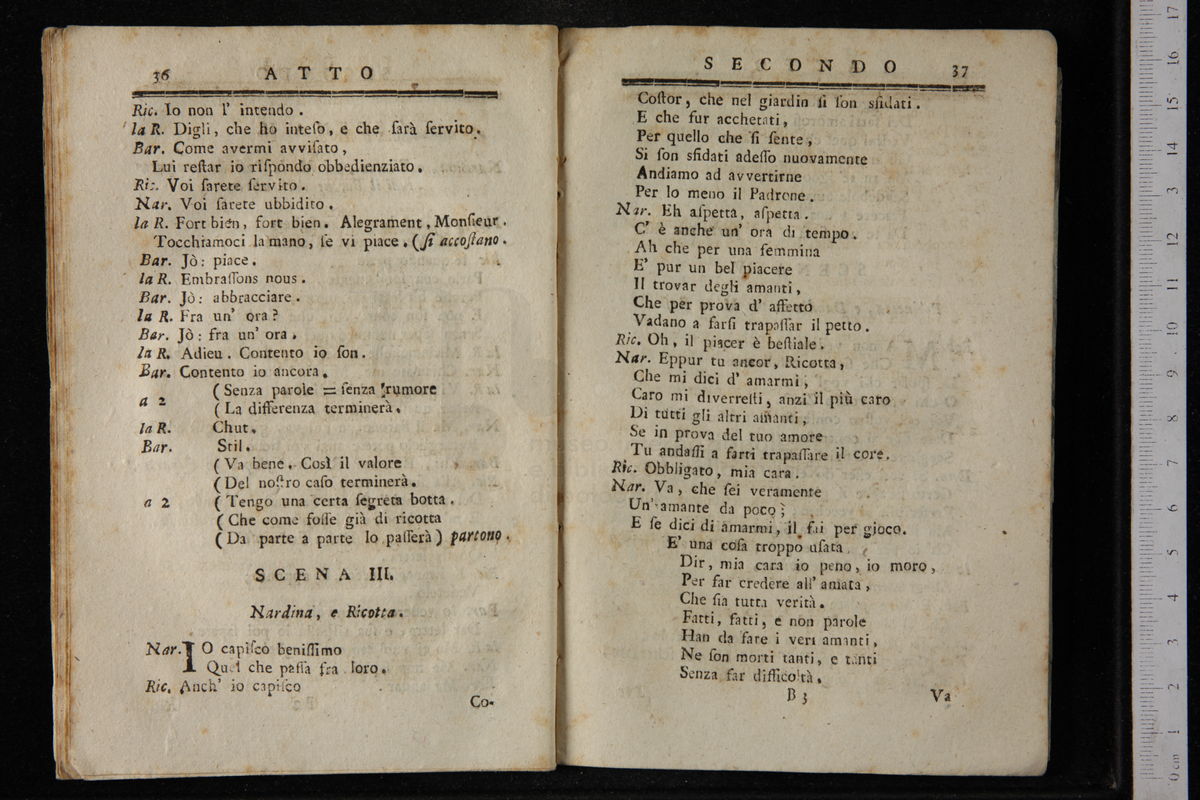 36 ATTO
Ric. Io non l' intendo.
la R. Digli, che ho inteſo, e che ſarà ſervito.
Bar. Come avermi avviſato,
Lui reſtar io riſpondo obbedienziato.
Ric. Voi ſarete ſervito.
Nar. Voi ſarete ubbidito.
la R. Fort bién, fort bien. Alegrament, Monſieur.
Tocchiamoci la mano, ſe vi piace. (ſi accoſtano.
Bar. Jò: piace.
la R. Embraſſons nous.
Bar. Jò: abbracciare.
la R. Fra un' ora?
Bar. Jò: fra un' ora.
la R. Adieu. Contento io ſon.
Bar. Contento io ancora.
a 2 (Senza parole = ſenza rumore
(La differenza terminerà.
la R. Chut.
Bar. Stil.
(Va bene. Così il valore
(Del noſtro caſo terminerà.
a 2 (Tengo una certa ſegreta botta.
(Che come foſſe già di ricotta
(Da parte a parte lo paſſerà) partono.
SCENA III.
Nardina, e Ricotta.
Nar. IO capiſco beniſſimo
Quel che paſſa fra loro.
Ric. Anch' io capiſco
Co-
SECONDO 37
Coſtor, che nel giardin ſi ſon sfidati.
E che fur acchetati,
Per quello che ſi ſente,
Si ſon sfidati adeſſo nuovamente
Andiamo ad avvertirne
Per lo meno il Padrone.
Nar. Eh aſpetta, aſpetta.
C' è anche un' ora di tempo.
Ah che per una femmina
E' pur un bel piacere
Il trovar degli amanti,
Che per prova d' affetto
Vadano a farſi trapaſſar il petto.
Ric. Oh, il piacer è beſtiale.
Nar. Eppur tu ancor, Ricotta,
Che mi dici d' amarmi,
Caro mi diverreſti, anzi il più caro
Di tutti gli altri amanti,
Se in prova del tuo amore
Tu andaſſi a farti trapaſſare il core.
Ric. Obbligato, mia cara.
Nar. Va, che ſei veramente
Un' amante da poco;
E ſe dici di amarmi, il fai per gioco.
E' una coſa troppo uſata
Dir, mia cara io peno, io moro,
Per far credere all' amata,
Che ſia tutta verità.
Fatti, fatti, e non parole
Han da fare i veri amanti,
Ne ſon morti tanti, e tanti
Senza far difficoltà.
B 3 Va